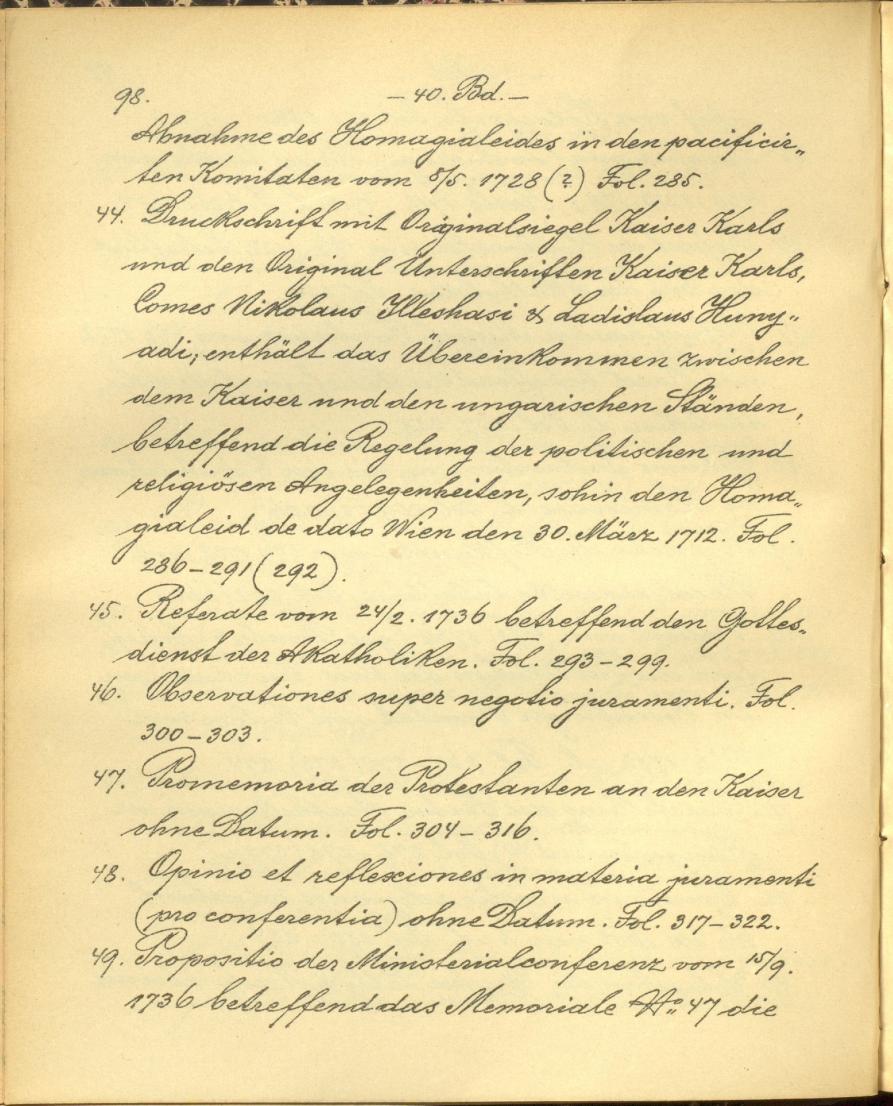 98. — 40. Bd. —
Abnahme des Homagialeides in den pacificir„
ten Komitaten vom 8/5. 1728 (?) Fol. 285.
44. Druckschrift mit Originalsiegel Kaiser Karls
und den Original Unterschriften Kaiser Karls,
Comes Nikolaus Illeshasi & Ladislaus Huny„
adi; enthält das Übereinkommen zwischen
dem Kaiser und den ungarischen Ständen,
betreffend die Regelung der politischen und
religiösen Angelegenheiten, sohin den Homa„
gialeid de dato Wien den 30. März 1712. Fol.
286–291 (292).
45. Referate vom 24/2. 1736 betreffend den Gottes„
dienst der Akatholiken. Fol. 293–299.
46. Observationes super negotio juramenti. Fol.
300–303.
47. Promemoria der Protestanten an den Kaiser
ohne Datum. Fol. 304–316.
48. Opinio et reflexiones in materia juramenti
(pro conferentia) ohne Datum. Fol. 317–322.
49. Propositio der Ministerialconferenz vom 15/9.
1736 betreffend das Memoriale No 47 die